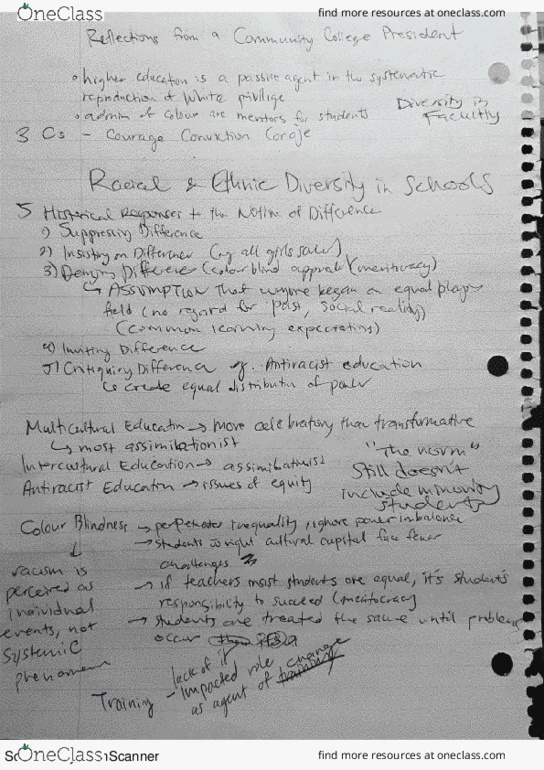 OneClass
find more resources at oneclass.com
Reflections from a Community College President
• higher education is a passive agent in the systematic
reproduction of White privilige
• admin of colour are mentors for students
Diversity in
Facultly
3 Cs - Courage Conviction Coraje
Racial & Ethnic Diversity in Schools
5 Historical Responses to the Notion of Difference
1) Suppressing Difference
2) Insisting on Difference (eg all girls
3) Denying Difference (colour blind (meritocracy)
↳ ASSUMPTION that anyone began on equal playing
field (no regard for past, social reality)
(common learning expectations)
4) Inviting Difference
5) Critiquing Difference eg. Antiracist education
↳ create equal distribution of power
Multicultural Education → more celebratory than transformative
↳ most assimilationist
"the norm"
Intercultural Education → assimilationist
Still doesn't
Antiracist Education → issues of equity
include minority
students
Colour Blindness → perpetuates inequality, ignore power imbalance
→ students right cultural capital face fewer
challenges
racism is
perceived as
individual
events, not
systemic
phenomenon
→ if teachers insist students are equal, it's student's
responsibility to succeed (meritocracy)
→ students are treated the same until problems
occur
Training - lack of it
impacted role, change
as agent of training
OneClass
Scanner
find more resources at oneclass.com